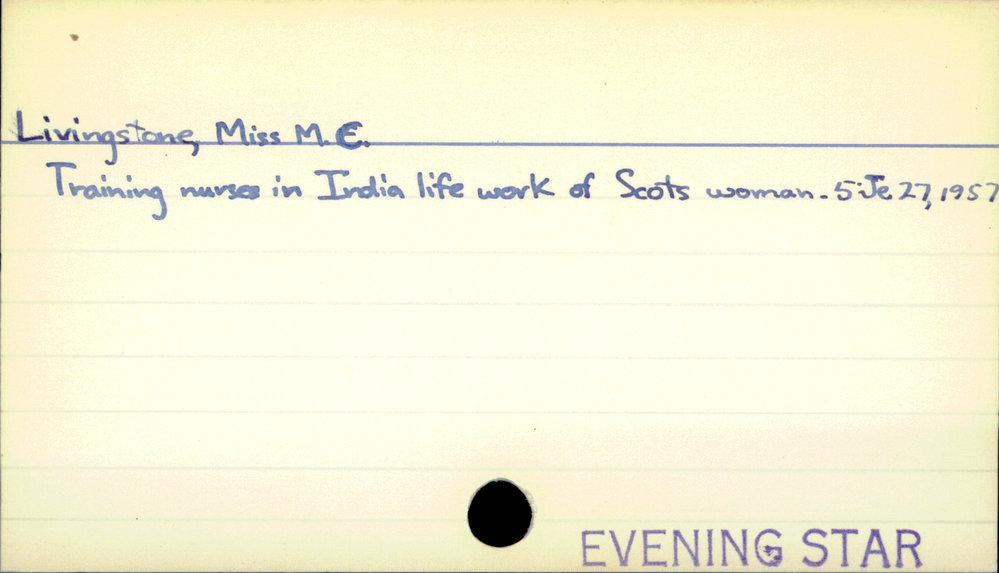 Livingstone, Miss M. E.
Training nurses in India life work of Scots woman. 5:Je 27, 1957
EVENING STAR